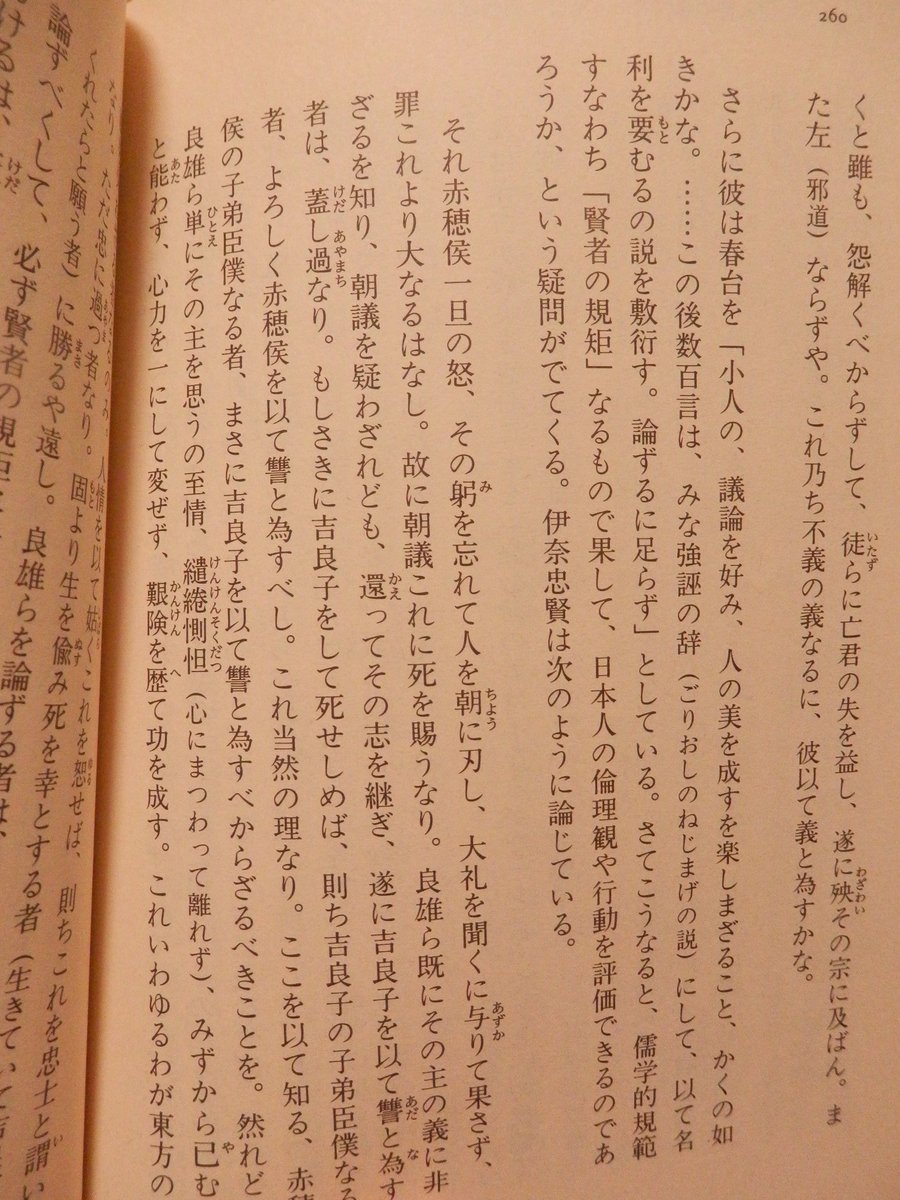 260
くと雖も、怨解くべからずして、徒らに亡君の失を益し、遂に殃その宗に及ばん。ま
た左（邪道）ならずや。これ乃ち不義の義なるに、彼以て義と為すかな。
さらに彼は春台を「小人の、議論を好み、人の美を成すを楽しまざること、かくの如
きかな。……この後数百言は、みな強誣の辞（ごりおしのねじまげの説）にして、以て名
利を要むるの説を敷衍す。論ずるに足らず」としている。さてこうなると、儒学的規範
すなわち「賢者の規矩」なるもので果して、日本人の倫理観や行動を評価できるのであ
ろうか、という疑問がでてくる。伊奈忠賢は次のように論じている。
それ赤穂侯一旦の怒、その躬を忘れて人を朝に刃し、大礼を聞くに与りて果さず、
罪これより大なるはなし。故に朝議これに死を賜うなり。良雄ら既にその主の義に非
ざるを知り、朝議を疑わざれども、還ってその志を継ぎ、遂に吉良子を以て讐と為す
者は、蓋し過なり。もしさきに吉良子をして死せしめば、則ち吉良子の子弟臣僕なる
者、よろしく赤穂侯を以て讐と為すべし。これ当然の理なり。ここを以て知る、赤穂
侯の子弟臣僕なる者、まさに吉良子を以て讐と為すべからざるべきことを。然れど
良雄ら単にその主を思うの至情、繾綣惻怛（心にまつわって離れず）、みずから已む
と能わず、心力を一にして変ぜず、艱険を歴て功を成す。これいわゆるわが東方の
人情を以て姑くこれを恕せば、則ちこれを忠士と謂い
なり。ただ忠に過つ者なり。固より生を偸み死を幸とする者（生きていて
くれたらと願う者）に勝るや遠し。良雄らを論ずる者は、
論ずべくして、必ず賢者の規矩